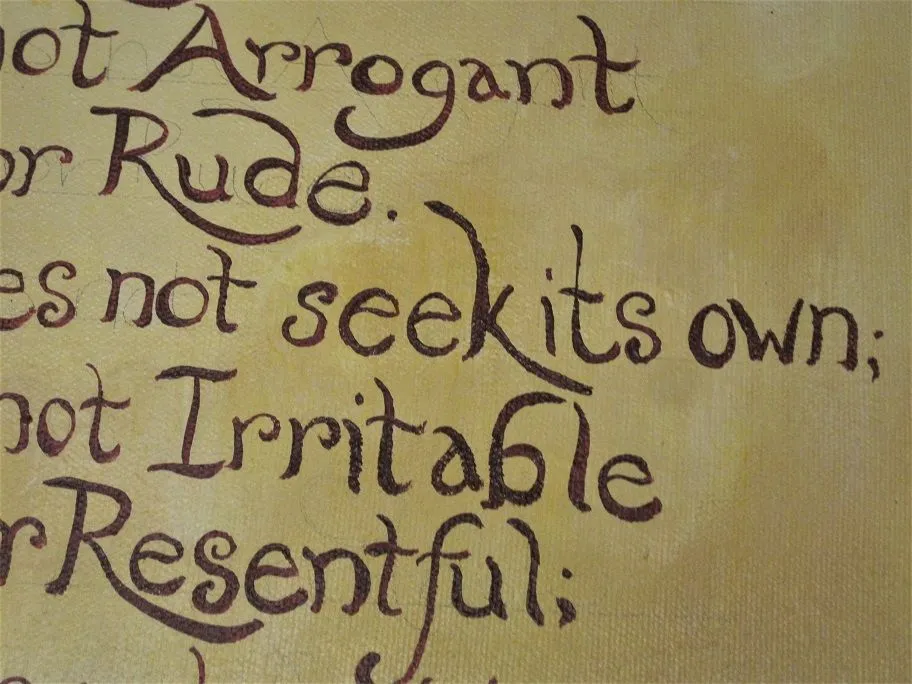 not Arrogant
or Rude.
es not seek its own;
not Irritable
r Resentful;